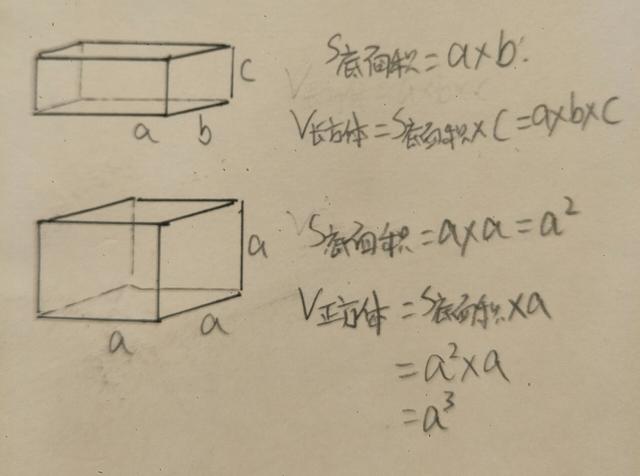 S底面积=a×b.
c
V长方体=S底面积×C=a×b×C
a b
S底面积=a×a=a²
a
V正方体=S底面积×a
a a
=a²×a
=a³